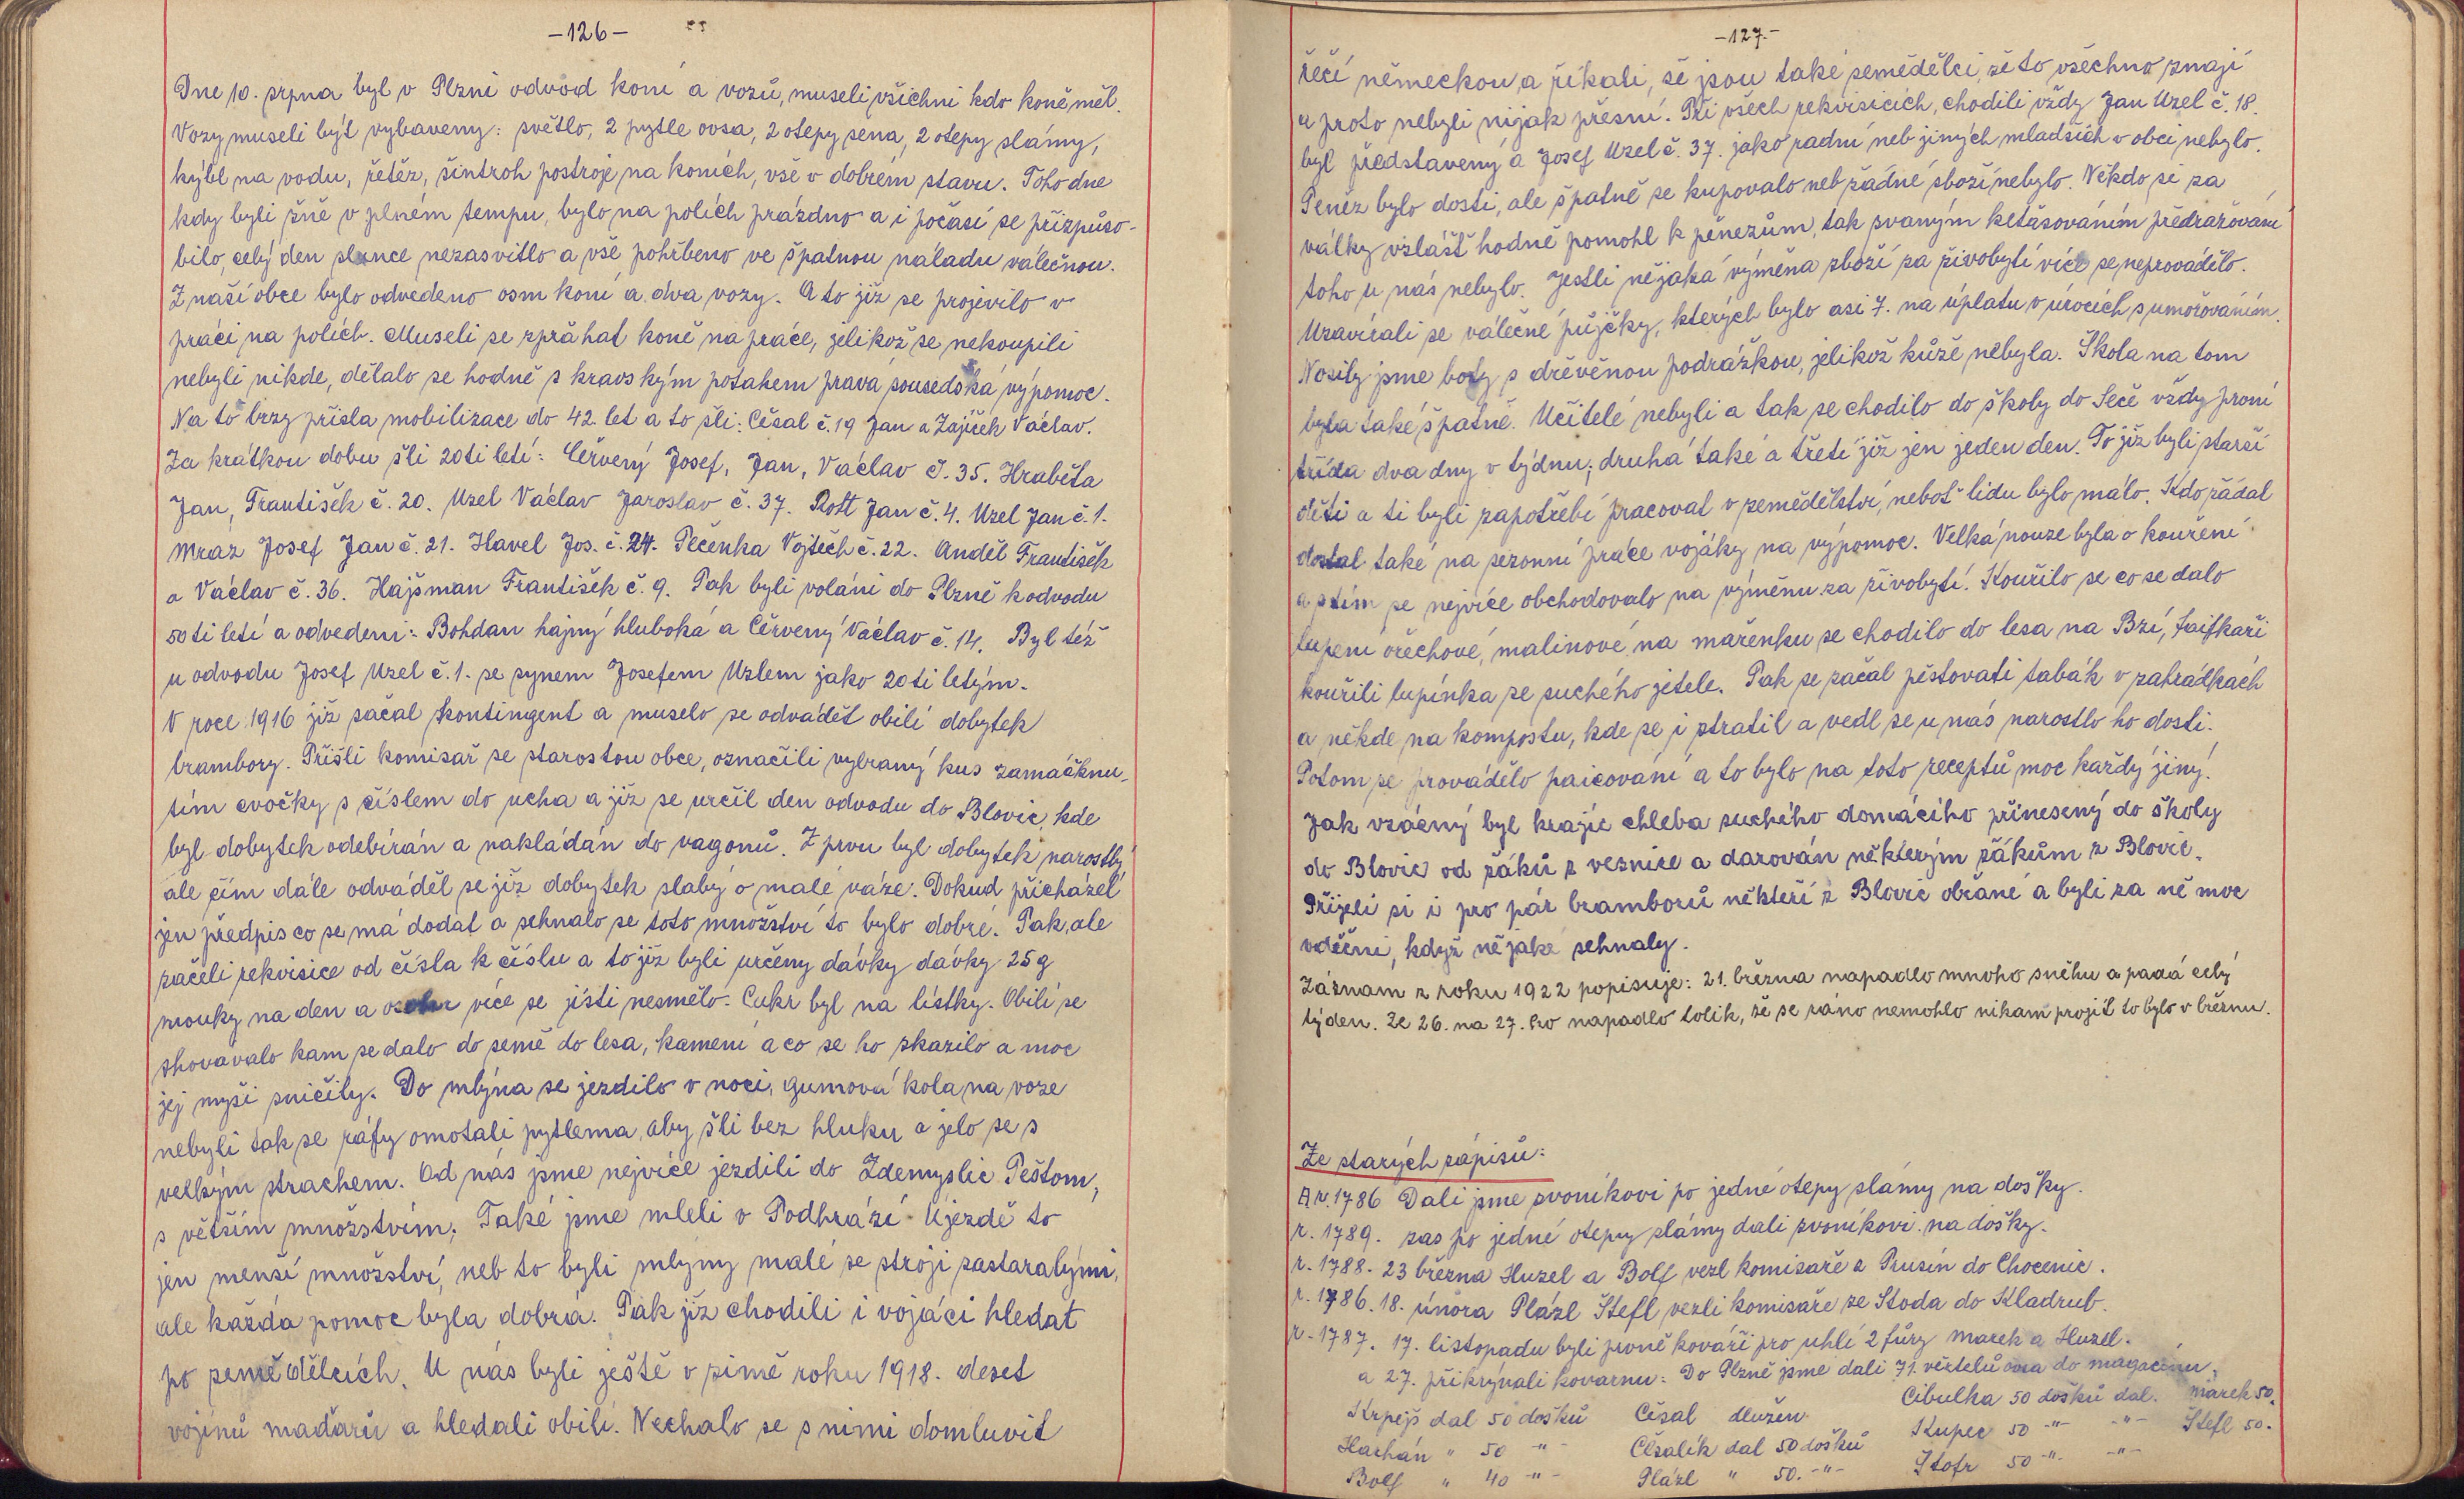 -126-
Dne 10. srpna byl v Plzni odvod koní a vozů, museli všichni kdo koně měl.
Vozy museli být vybaveny: světlo, 2 pytle ovsa, 2 otepy sena, 2 otepy slámy,
kýbl na vodu, řetěz, šintroh postroje na koních, vše v dobrém stavu. Toho dne
kdy byli žně v plném tempu, bylo na polích prázdno a i počasí se přizpůso-
bilo, celý den slunce nezasvitlo a vše pohřbeno ve špatnou náladu válečnou.
Z naší obce bylo odvedeno osm koní a dva vozy. A to již se projevilo v
práci na polích. Museli se zpřáhat koně na práce, jelikož se nekoupili
nebyli nikde, dělalo se hodně s kravským potahem pravá sousedská výpomoc.
Na to brzy přišla mobilizace do 42 let a to šli: Čěsal č.19 Jan a Zajíček Václav.
Za krátkou dobu šli 20ti letí: Červený Josef, Jan, Václav č. 35. Hraběta
Jan, František č. 20. Uzel Václav Jaroslav č. 37. Rott Jan č. 4. Uzel Jan č. 1.
Mraz Josef Jan č. 21. Havel Jos. č. 24. Pečenka Vojtěch č. 22. Anděl František
a Václav č. 36. Hajšman František č. 9. Pak byli voláni do Plzně k odvodu
50ti letí a odvedeni: Bohdan hajný hluboká a Červený Václav č. 14. Byl též
u odvodu Josef Uzel č. 1. se synem Josefem Uzlem jako 20ti letým.
V roce 1916 již začal kontingent a muselo se odvádět obilí dobytek
brambory. Přišli komisař se starostou obce, označili vybraný kus zamáčknu-
tím cvočky s číslem do ucha a již se určil den odvodu do Blovic, kde
byl dobytek odebírán a nakládán do vagonů. Z prvu byl dobytek narostlý
ale čím dále odváděl se již dobytek slabý o malé váze. Dokud přicházel
jen předpis co se má dodat a sehnalo se toto množství to bylo dobré. Pak ale
začeli rekvisice od čísla k číslu a to již byli určeny dávky dávky 25g
mouky na den a osobu více se jísti nesmělo. Cukr byl na lístky. Obilí se
shovavalo kam se dalo do země do lesa, kamení a co se ho zkazilo a moc
jej myši sničily. Do mlýna se jezdilo v noci, gumová kola na voze
nebyli tak se ráfy omotali pytlema, aby šli bez hluku a jelo se s
velkým strachem. Od nás jsme nejvíce jezdili do Zdemyslic Peštom,
s větším množstvím; Také jsme mleli v Podhrází Újezdě to
jen menší množství, neb to byli mlýny malé se stroji zastaralými,
ale každá pomoc byla dobrá. Pak již chodili i vojáci hledat
po zemědělcích. U nás byli ještě v zimě roku 1918. deset
vojínů maďarů a hledali obilí. Nechalo se s nimi domluvit
-127.-
řečí německou, a říkali, že jsou také zemědělci, že to všechno znají
a proto nebyli nijak přesní. Při všech rekvisicích, chodili vždy Jan Uzel č. 18.
byl představený a Josef Uzel č. 37. jako radní neb jiných mladších v obci nebylo.
Peněz bylo dosti, ale špatně se kupovalo neb žádné zboží nebylo. Někdo si za
války vzlášť hodně pomohl k penězům, tak zvaným keťasováním předražování
toho u nás nebylo. Jestli nějaká výměna zboží za živobytí více se neprovádělo.
Uzavírali se válečné půjčky, kterých bylo asi 7. na úplatu v úrocích s umořováním.
Nosily jsme boty s dřevěnou podrážkou, jelikož kůže nebyla. Škola na tom
byla také špatně. Učitelé nebyli a tak se chodilo do školy do Seče vždy první
třída dva dny v týdnu, druhá také a třetí již jen jeden den. To již byli starší
děti a ti byli zapotřebí pracovat v zemědělství, neboť lidu bylo málo. Kdo žádal
dostal také na sezonní práce vojáky na výpomoc. Velká nouze byla o kouření
a s tím se nejvíce obchodovalo na výměnu za živobytí. Kouřilo se co se dalo
lupení ořechové, malinové, na mařenku se chodilo do lesa na Bzí, fajfkaři
kouřili lupínka ze suchého jetele. Pak se začal pěstovati tabák v zahrádkách
a někde na kompostu, kde se i ztratil a vedl se u nás narostlo ho dosti.
Potom se provádělo paicování a to bylo na toto receptů moc každý jiný.
Jak vzácný byl krajíc chleba suchého domácího přinesený do školy
do Blovic od žáků z vesnice a darován některým žákům z Blovic.
Přijeli si i pro pár bramborů někteří z Blovic občané a byli za ně moc
vděčni, když nějaké sehnaly.
Záznam z roku 1922 popisuje: 21. března napadlo mnoho sněhu a padá celý
týden. Ze 26. na 27. ho napadlo tolik, že se ráno nemohlo nikam projít to bylo v březnu.
Ze starých zápisů:
A r. 1786 Dali jsme zvoníkovi po jedné otepy slámy na došky.
r. 1789. zas po jedné otepy slámy dali zvoníkovi na došky.
r. 1788. 23 března Huzel a Bolf vezl komisaře z Prusín do Chocenic.
r. 1786. 18. února Plázl Štefl vezli komisaře ze Stoda do Kladrub.
r. 1787. 17. listopadu byli prvně kováři pro uhlí 2 fůry Marek a Huzel.
a 27. přikrývali kovarnu. Do Plzně jsme dali 71. věrtelů ovsa do magacínu.
Krpejš dal 50 došků Čěsal dlužen Cibulka 50 došků dal. Marek 50.
Hachán " 50 -"- Čěsalík dal 50 došků Kupec 50 -"- -"- Štefl 50.
Bolf " 40 -"- Plázl " 50. -"- Štofr 50 -"- -"-